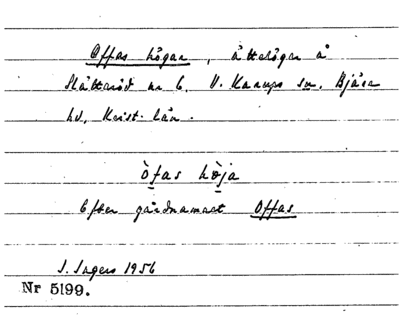 Offas högar, ättehögar å
Slättaröd nr 6. V. Karups sn. Bjäre
hd. Krist. län.
òfas høja
Efter gårdnamnet Offas
1956
Nr 5199.